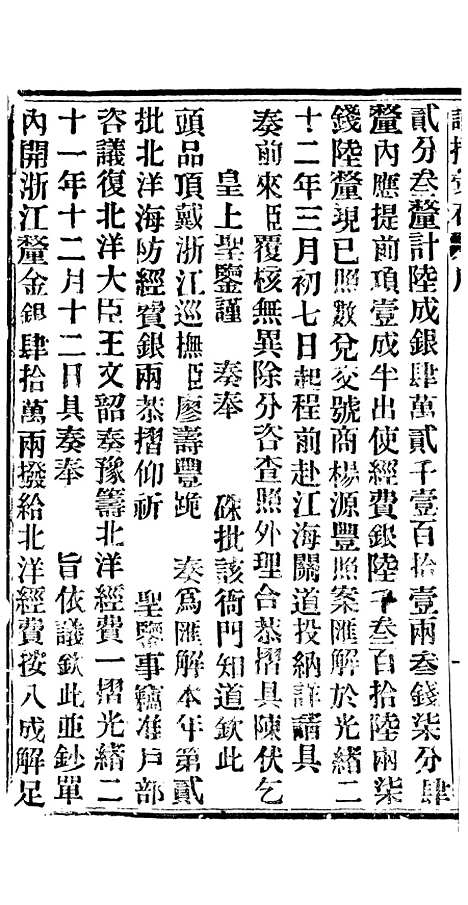 貳分叁釐計陸成銀肆萬貳千壹百拾壹兩叁錢柒分肆
釐內應提前項壹成半出使經費銀陸千叁百拾陸兩柒
錢陸釐現已照數兌交號商楊源豐照案匯解於光緒二
十二年三月初七日起程前赴江海關道投納詳請具
奏前來臣覆核無異除分咨查照外理合恭摺具陳伏乞
皇上聖鑒謹 奏奉 硃批該衙門知道欽此
頭品頂戴浙江巡撫臣廖壽豐跪 奏爲匯解本年第貳
批北洋海防經費銀兩恭摺仰祈 聖鑒事竊准戶部
咨議復北洋大臣王文韶奏豫籌北洋經費一摺光緒二
十一年十二月十二日具奏奉 旨依議欽此並鈔單
內開浙江釐金銀肆拾萬兩撥給北洋經費按八成解足